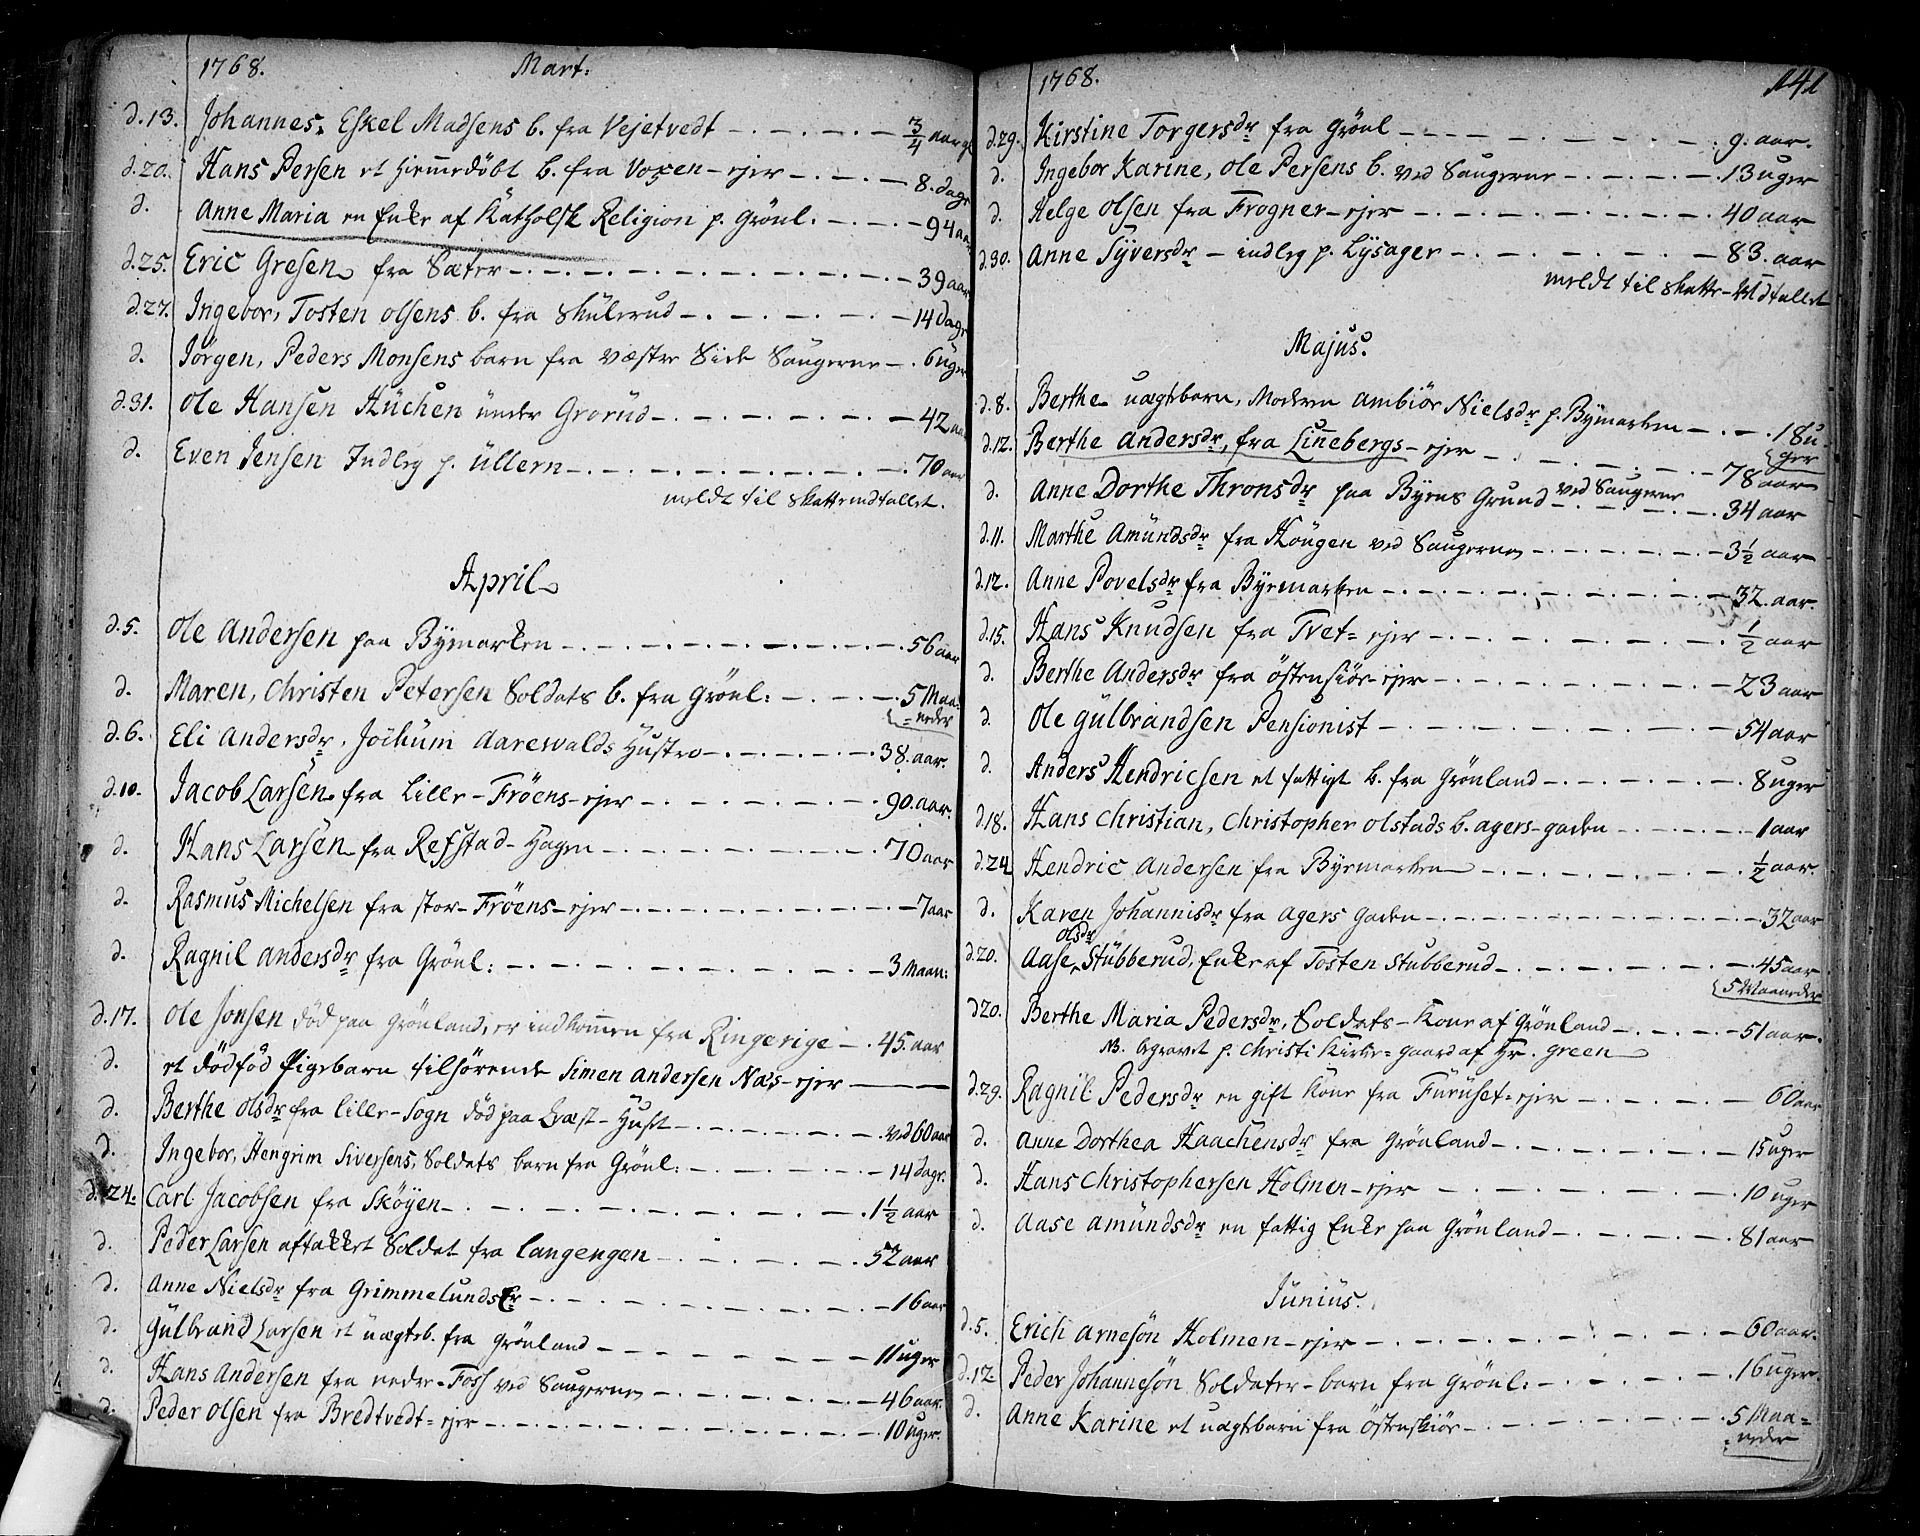 1768. Mart:
d.13. Johannes, Eskel Madsens b. fra Vejetvedt 3/4 aar gl
d.20. Hans Persen et hiemmedöbt b. fra Voxen-ejer 8. dage
d. Anne Maria en Enke af Katholsk Religion p. Grönl: 94 aar
d.25. Eric Gresen fra Sæter 39 aar
d.27. Ingebor, Tosten Olsens b. fra Skulerud 14 dage
d. Jörgen, Peders Monsens barn fra væster Side Saugerne 6 uger
d.31. Ole Hansen Küchen under Grorud 42 aar
d. Even Jensen Indleg p. Üllern 70 aar
meldt til Skattemdtallet.
April
d.5. Ole Andersen paa Bymarken 56 aar
d. Maren, Christen Petersen Soldats b. fra Grönl: 5 Maa-
neder
d.6. Eli Andersdr, Jochum Aarewalds Hustro 38. aar.
d.10. Jacob Larsen fra Lille-Fröens-ejer 90. aar.
d. Hans Larsen fra Refstad-Hagen 70 aar
d. Rasmus Michelsen fra stor-Fröens-ejer 7 aar
d. Ragnil Andersdr fra Grönl: 3 Maan:
d.17. Ole Jonsen död paa Grönland, er indkommen fra Ringerige 45. aar
d. et dödföd Pigebarn tilhörende Simen Andersen Næs-ejer
d. Berthe Olsdr fra Lille-Sogn död paa Qvæst-Huset ved 60 aar
d. Ingebor, Hengrim Siversens, Soldats barn fra Grönl: 14 dage.
d.24. Carl Jacobsen fra Sköyen 1 1/2 aar
d. Peder Larsen aftakket Soldat fra Langengen 52 aar
d. Anne Nielsdr fra Grimmelunds Er 16 aar
d. Gulbrand Larsen et uægteb. fra Grönland 11 uger
d. Hans Andersen fra neder-Foss ved Saugerne 46 aar.
d. Peder Olsen fra Bredtvedt-ejer 10 uger.
1768. 141
d.29. Kirstine Torgersdr fra Grönl 9. aar.
d. Ingebor Karine, Ole Persens b. ved Saugerne 13 uger
d. Helge Olsen fra Frogner-ejer 40 aar
d.30. Anne Syversdr - indleg p. Lysager 83. aar
meldt til Skatte-Mdtallet
Majus.
d.8. Berthe uægtebarn, Moderen Ambiör Nielsdr p. Bymarken 18 u-
ger
d.12. Berthe Andersdr, fra Linnebergs-ejer 78 aar
d. Anne Dorthe Thronsdr paa Byens Grund ved Saugerne 34 aar
d.11. Marthe Amundsdr fra Hougen ved Saugerne 3 1/2 aar
d.12. Anne Povelsdr fra Byemarken 32. aar.
d.15. Hans Knudsen fra Tvet-ejer 1/2 aar
d. Berthe Andersdr fra Östensiöe-ejer 23 aar
d. Ole Gulbrandsen Pensionist 54 aar
d. Anders Hendricsen et fattigt b. fra Grönland 8 uger
d.18. Hans Christian, Christopher Olstads b. Agers-gaden 1 aar
d.24 Hendric Andersen fra Byemarken 1/2 aar.
d. Karen Johannisdr fra Agers Gaden 32 aar
d.20. Aase Olsdr Stubberud, Enke af Tosten Stubberud 45 aar
5 Maaneder
d20. Berthe Maria Pedersdr, Soldats-Kone af Grönland 51 aar.
NB. begravet p. Christi Kirke-gaard af Hr. Green
d.29. Ragnil Pedersdr en gift Kone fra Furuset-ejer 60 aar
d. Anne Dorthea Haachensdr fra Grönland 15 uger
d. Hans Christophersen Holmen-ejer 10 uger
d. Aase Amundsdr en fattig Enke paa Grönland 81 aar
Junius.
d.5. Erich Arnesön Holmen-ejer 60 aar.
d.12. Peder Johannesön Soldater-barn fra Grönl: 16 uger.
d. Anne Karine et uægtebarn fra Östensiöe 5 Maa-
neder